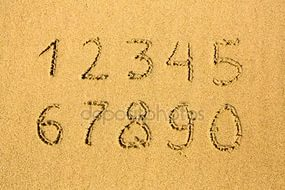 1 2 3 4 5
6 7 8 9 0
depositphotos